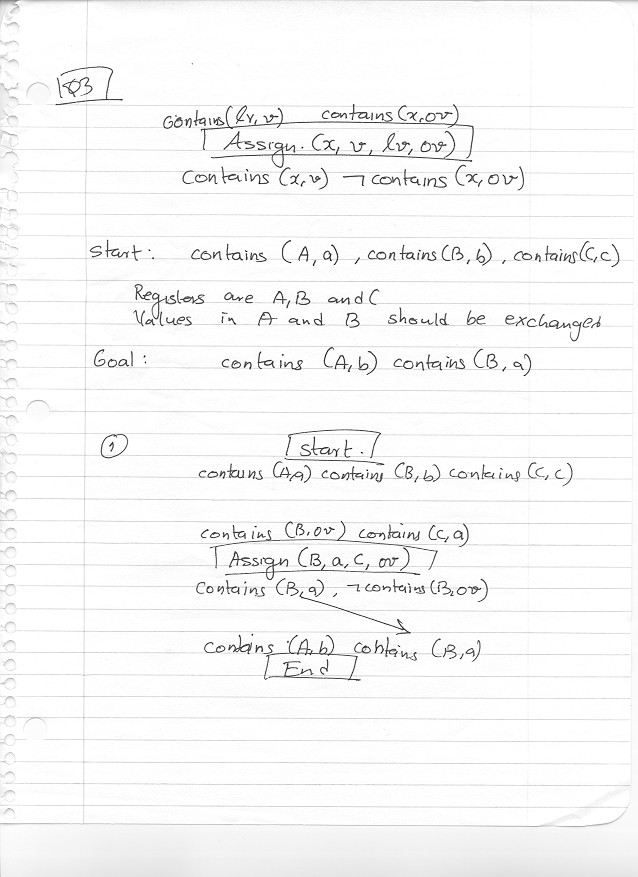 Q3
contains (lv, v) contains (x, ov)
Assign. (x, v, lv, ov)
contains (x, v) ¬ contains (x, ov)
Start: contains (A, a), contains (B, b), contains (C, c)
Registers are A, B and C
Values in A and B should be exchanged
Goal: contains (A, b) contains (B, a)
1
Start.
contains (A, a) contains (B, b) contains (C, c)
contains (B, ov) contains (C, a)
Assign (B, a, C, ov)
contains (B, a), ¬ contains (B, ov)
contains (A, b) contains (B, a)
End